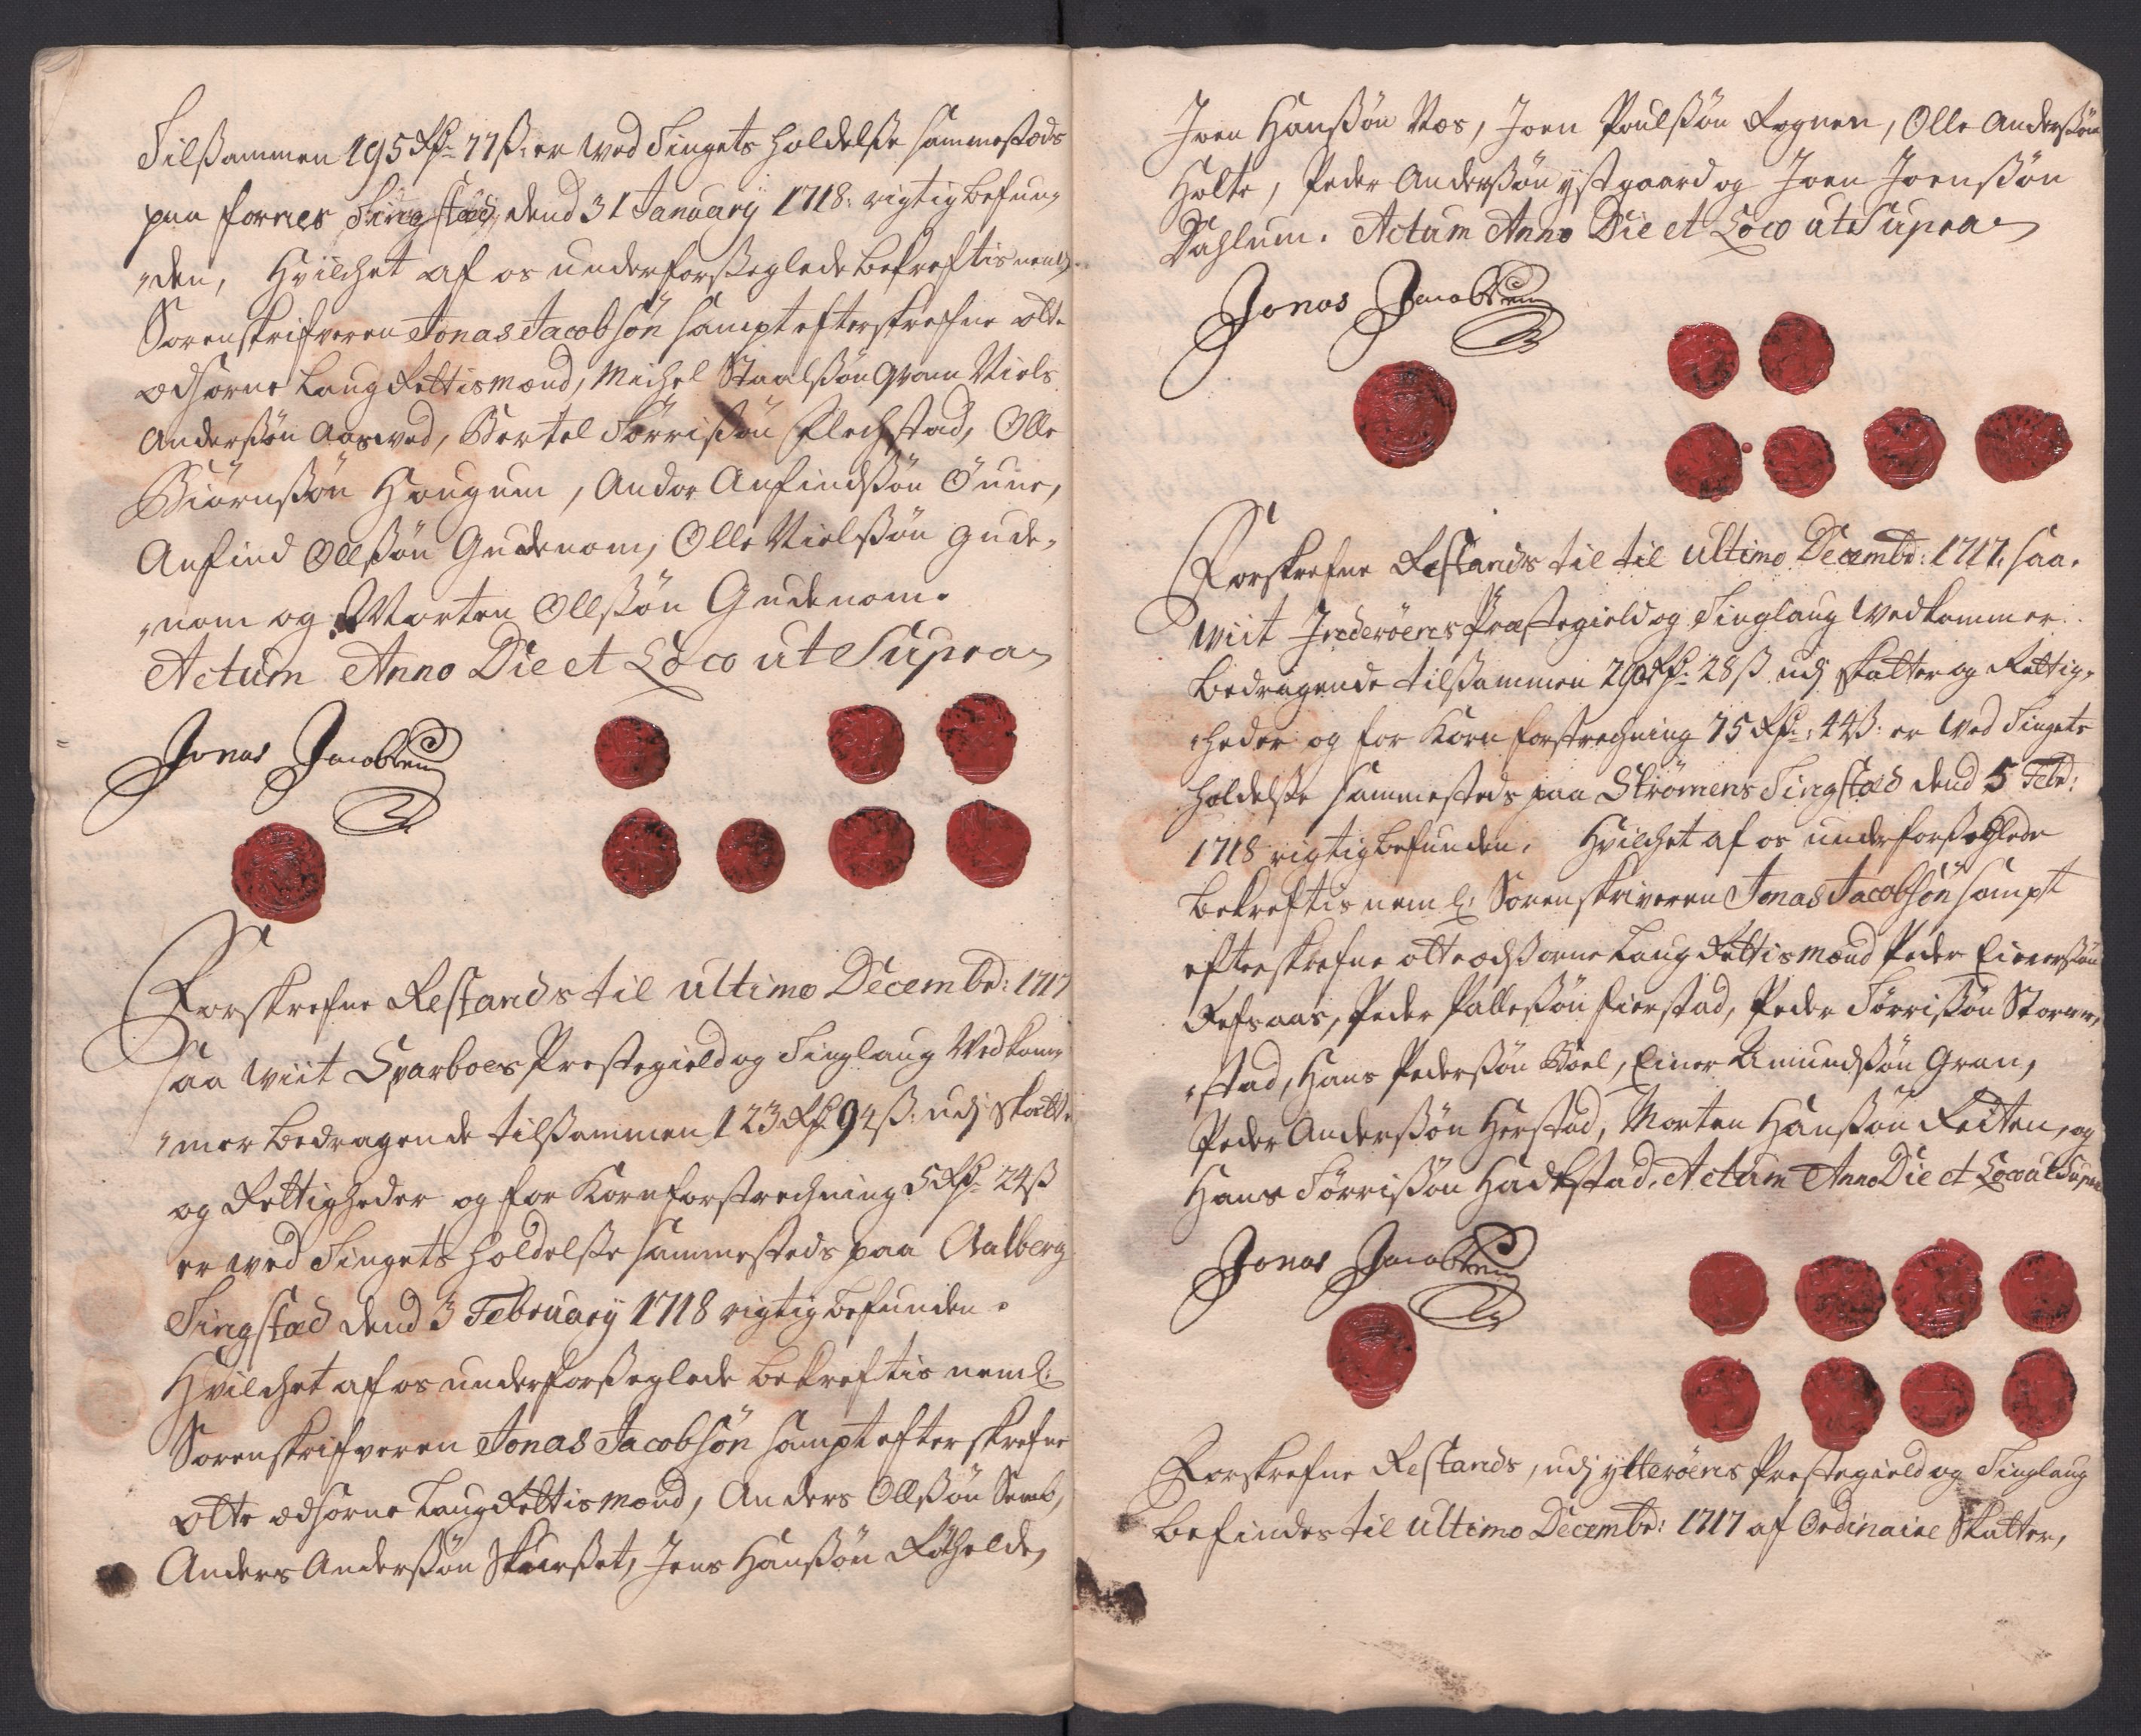 Tilsammen 195 Rdr 77 ß: er wed Tingets holdelße sammestæds
paa fornes Tingstæd, dend 31 January 1718: rigtig befun-
"den, Hvilchet af os underforßeglede bekreftis neml:
Sorenskrifveren Jonas Jacobsön sampt efterskrefne otte
ædsorne Laug Rettismænd, Michel Staalßön Qvam Niels
Anderßön Aaswed, Bertel Törrisßön Flechstad, Olle
Biörnßön Hougum, Andor Anfindßön Öuue,
Anfind Ollßön Gudenom, Olle Nielßön Gude-
"nom og Morten Ollßön Gudenom.
Actum Anno Die et Loco ut Supra
Jonas Jacobsen
Forskrefne Restands til ultimo Decembr: 1717
saa wiit Sparboes Prestegield og Tinglaug Wedkom-
"mer bedragende tilßammen 123 Rdr 94 ß: udj Skatte
og Rettigheder og for Kornforstrechning 5 Rdr 24 ß
er wed Tingets holdelße sammesteds paa Aalberg
Tingstæd dend 3 February 1718 rigtig befunden.
Hvilchet af os underforßeglede bekreftis neml:
Sorenskrifveren Jonas Jacobsön sampt efterskrefne
otte ædsorne Laug Rettismænd, Anders Ollßön Semb,
Anders Anderßön Skierßet, Jens Hanßön
Joen Hanßön Næs, Joen Poulßön Rognen, Olle Anderßön
Holte, Peder Anderßön ystgaard og Joen Joenßön
Dahlum. Actum Anno Die et Loco ut Supra
Jonas Jacobsen
Forskrefne Restands til til ultimo Decembr: 1717. saa-
wiit Inderöens Præstegield og Tinglaug wedkommer
bedragende tilßammen Rdr 28 ß udj skatter og Rettig-
"heder og for Korn forstrechning 75 Rdr: 44 ß: er wed Tingets
holdelße sammesteds paa Strömens Tingstæd dend 5 Febr:
1718 rigtig befunden. Hvilchet af os underforßeglede
bekreftis neml: Sorenskriveren Jonas Jacobsön sampt
efterskrefne otte ædßorne Laug Rettismænd Peder Einerßön
Refsaas, Peder Palleßön Fierstad, Peder Törrisßön Storrem-
"stad, Hans Pederßön Boel, Einer Amundßön Gran,
Peder Anderßön Herstad, Morten Hanßön Reiten, og
Hans Törrisßön Hackstad, Actum Anno Die et Loco ut Supra
Jonas Jacobsen
Forskrefne Restands, udj ytteröens Prestegield og Tinglaug
befindes til ultimo Decembr: 1717 af Ordinaire Skatter,